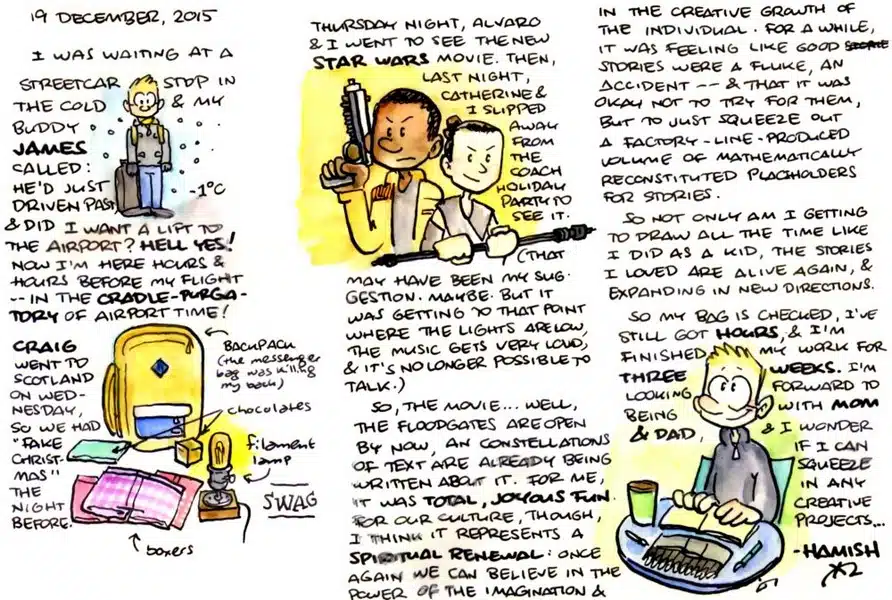 19 DECEMBER, 2015
I WAS WAITING AT A
STREETCAR STOP IN
THE COLD & MY
BUDDY
JAMES
CALLED:
HE'D JUST
DRIVEN PAST
-1°C
& DID I WANT A LIFT TO
THE AIRPORT? HELL YES!
NOW I'M HERE HOURS &
HOURS BEFORE MY FLIGHT
-- IN THE CRADLE-PURGA-
TORY OF AIRPORT TIME!
CRAIG
WENT TO
SCOTLAND
ON WED-
NESDAY,
SO WE HAD
"FAKE
CHRIST-
MAS"
THE
NIGHT
BEFORE.
BACKPACK
(the messenger
bag was killing
my back)
chocolates
filament
lamp
SWAG
boxers
THURSDAY NIGHT, ALVARO
& I WENT TO SEE THE NEW
STAR WARS MOVIE. THEN,
LAST NIGHT,
CATHERINE &
I SLIPPED
AWAY
FROM
THE
COACH
HOLIDAY
PARTY TO
SEE IT.
(THAT
MAY HAVE BEEN MY SUG-
GESTION. MAYBE. BUT IT
WAS GETTING TO THAT POINT
WHERE THE LIGHTS ARE LOW,
THE MUSIC GETS VERY LOUD,
& IT'S NO LONGER POSSIBLE TO
TALK.)
SO, THE MOVIE... WELL,
THE FLOODGATES ARE OPEN
BY NOW, AN CONSTELLATIONS
OF TEXT ARE ALREADY BEING
WRITTEN ABOUT IT. FOR ME,
IT WAS TOTAL, JOYOUS FUN.
FOR OUR CULTURE, THOUGH,
I THINK IT REPRESENTS A
SPIRITUAL RENEWAL: ONCE
AGAIN WE CAN BELIEVE IN THE
POWER OF THE IMAGINATION &
IN THE CREATIVE GROWTH OF
THE INDIVIDUAL. FOR A WHILE,
IT WAS FEELING LIKE GOOD
STORIES WERE A FLUKE, AN
ACCIDENT -- & THAT IT WAS
OKAY NOT TO TRY FOR THEM,
BUT TO JUST SQUEEZE OUT
A FACTORY-LINE-PRODUCED
VOLUME OF MATHEMATICALLY
RECONSTITUTED PLACHOLDERS
FOR STORIES.
SO NOT ONLY AM I GETTING
TO DRAW ALL THE TIME LIKE
I DID AS A KID, THE STORIES
I LOVED ARE ALIVE AGAIN, &
EXPANDING IN NEW DIRECTIONS.
SO MY BAG IS CHECKED, I'VE
STILL GOT HOURS, & I'M
FINISHED MY WORK FOR
THREE WEEKS. I'M
LOOKING FORWARD TO
BEING WITH MOM
& DAD, & I WONDER
IF I CAN
SQUEEZE
IN ANY
CREATIVE
PROJECTS...
-HAMISH